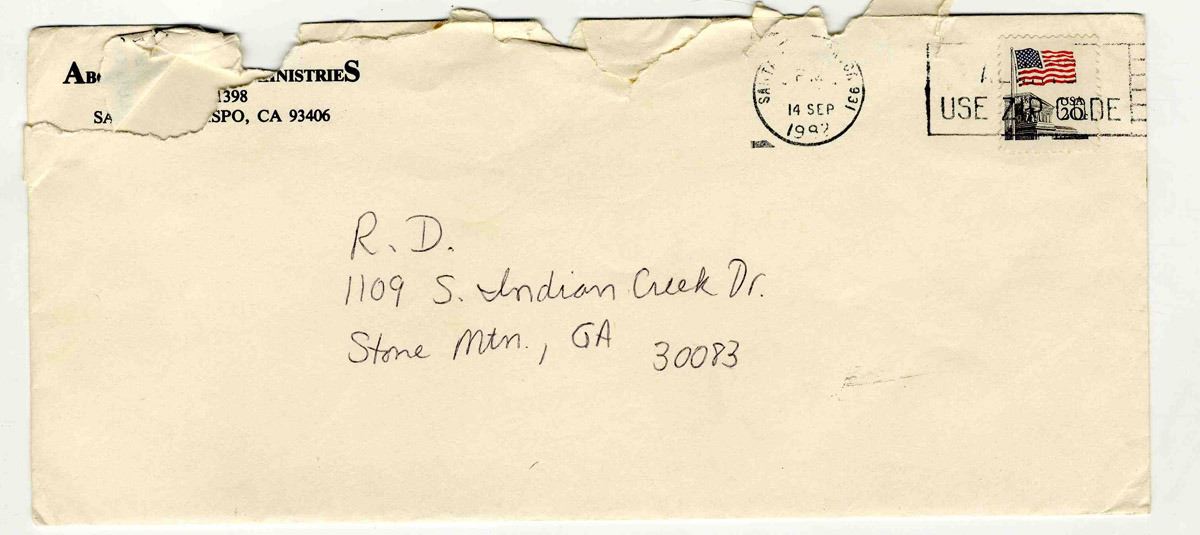 AB
INISTRIES
1398
SA
ISPO, CA 93406
SANTA
CA 931
PM
14 SEP
1982
USE ZIP CODE
USA
20c
R. D.
1109 S. Indian Creek Dr.
Stone Mtn., GA 30083